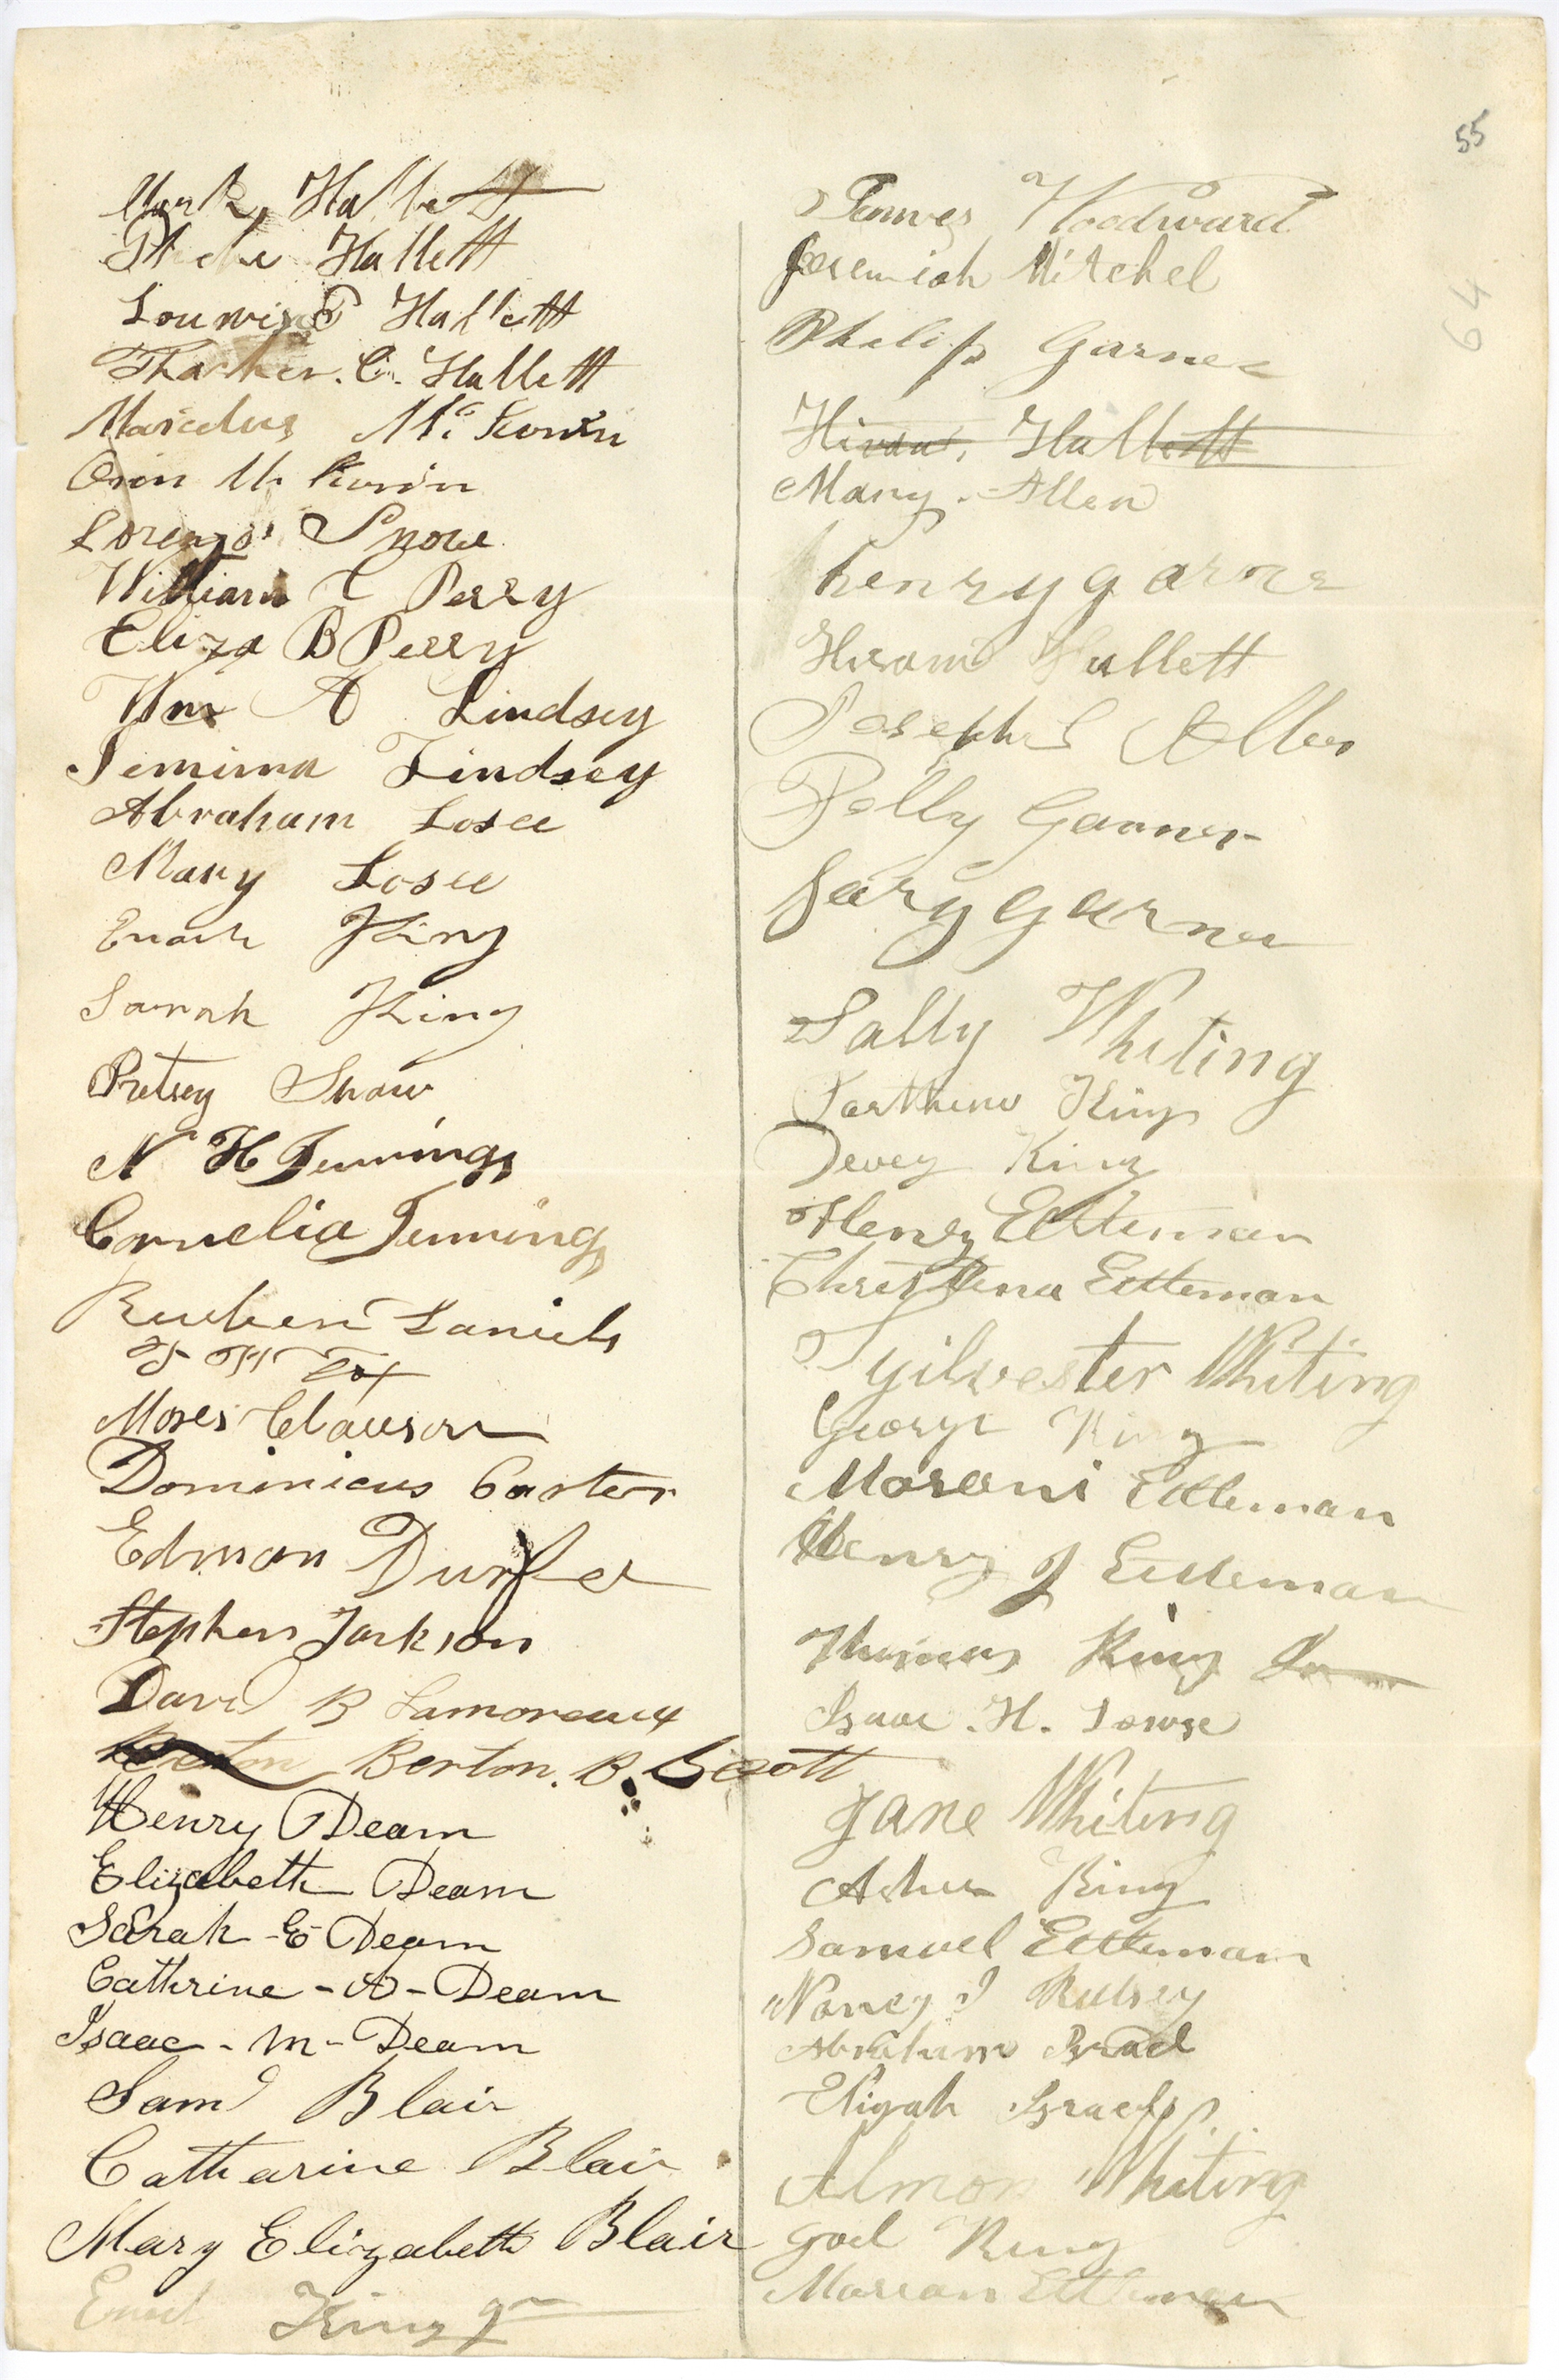 55
64
Mark Hallett
Phebe Hallett
Louwisa Hallett
Thacher. C. Hallett
Marcelus Mc Keown
Orin Mc Kown
Lorenzo Snow
William C Perry
Eliza B Perry
Wm A Lindsey
Jemima Lindsey
Abraham Losee
Mary Losee
Enoch King
Sarah King
Betsey Shaw
N H Jennings
Cornelia Jennings
Reuben Daniels
Moses Clauson
Dominicus Carter
Edmon Durfee
Stephen Jackson
David B Lamoreaux
Berton. B. Scott
Henry Deam
Elizabeth Deam
Sarah E Deam
Cathrine - A - Deam
Isaac - M - Deam
Saml Blair
Catharine Blair
Mary Elizabeth Blair
King Jr
James Woodward
Jeremiah Mitchel
Philip Garner
Hiram Hallett
Mary. Allen
henry garner
Hiram Hallett
Joseph S Allen
Polly Garner
garner
Sally Whiting
Parthene King
Devey King
Henry Ettleman
Christena Ettleman
Sylvester Whiting
George King
Moroni Ettleman
Henry J Ettleman
Thomas King
Isaac. H.
Jane Whiting
Asher King
Samuel Ettleman
Nancy J
Abraham
Elijah Israel
Almon Whiting
King
Marian Ettleman